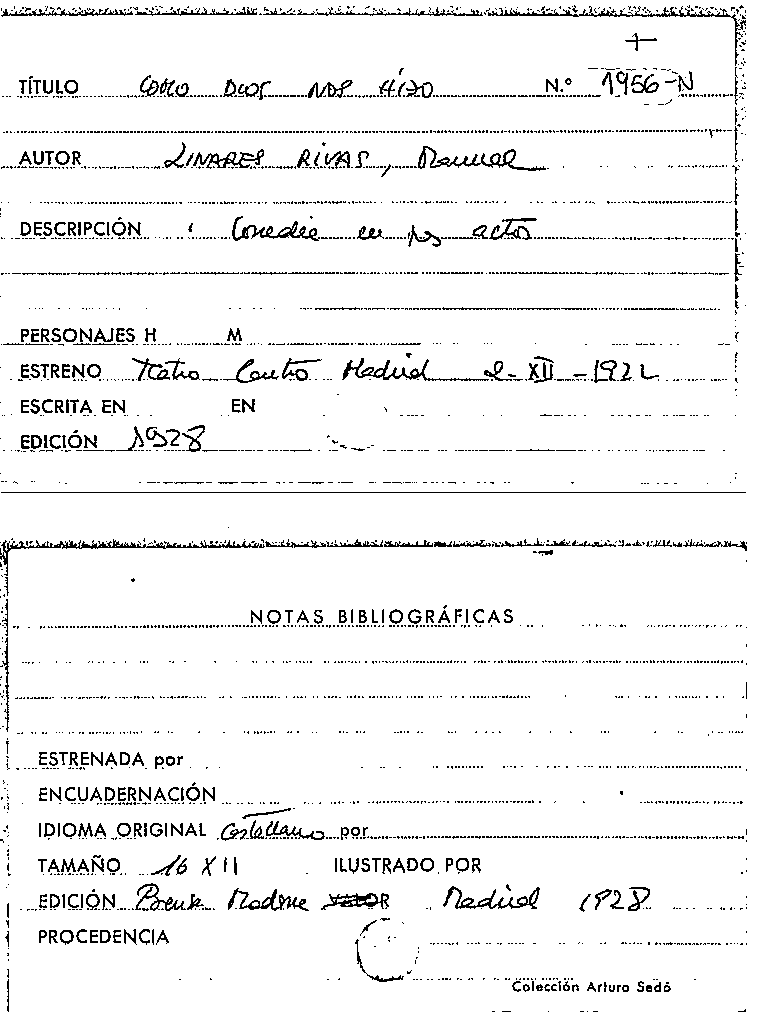 +
TÍTULO COMO DIOS NOS HÍZO N.º 1956-N
AUTOR LINARES RIVAS, Manuel
DESCRIPCIÓN Comedia en tres actos
PERSONAJES H M
ESTRENO Teatro Centro Madrid 2-XII-1922
ESCRITA EN EN
EDICIÓN 1928
NOTAS BIBLIOGRÁFICAS
ESTRENADA por
ENCUADERNACIÓN
IDIOMA ORIGINAL Castellano por
TAMAÑO 16 X 11 ILUSTRADO POR
EDICIÓN Prensa Moderna VALOR Madrid 1928
PROCEDENCIA
Colección Arturo Sedó